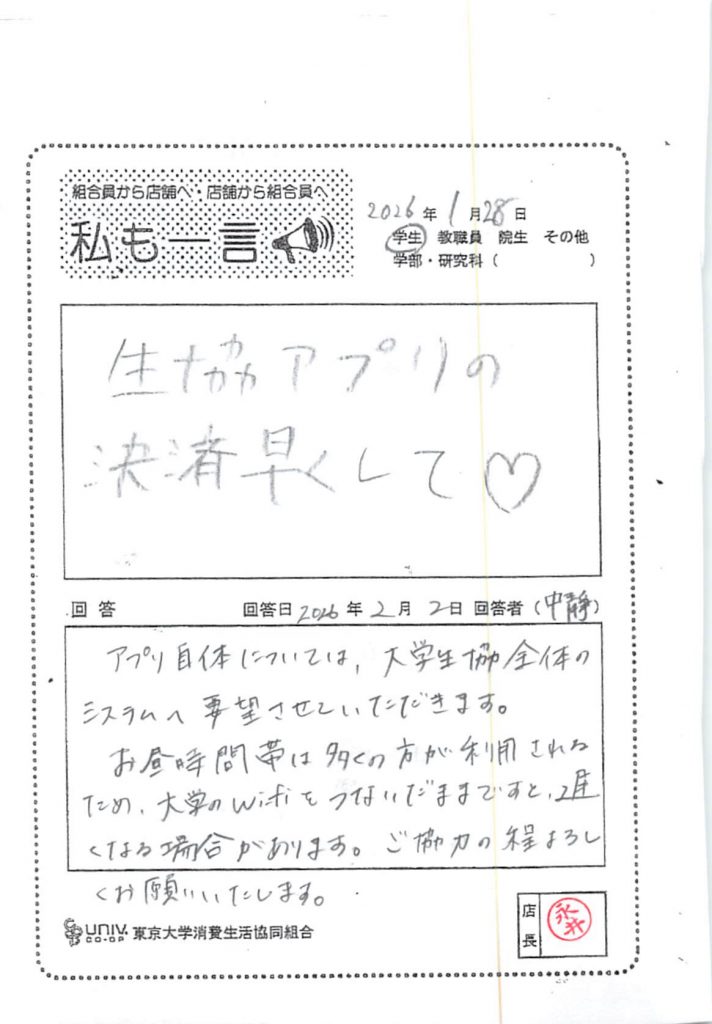 組合員から店舗へ・店舗から組合員へ
私も一言
2026年1月28日
学生 教職員 院生 その他
学部・研究科( )
生協アプリの
決済早くして♡
回答 回答日2026年2月2日 回答者(中静)
アプリ自体については、大学生協全体の
システムへ要望させていただきます。
お昼時間帯は多くの方が利用される
ため、大学のwifiをつないだままですと、遅
くなる場合があります。ご協力の程よろし
くお願いいたします。
UNIV. CO-OP 東京大学消費生活協同組合
店長 永井